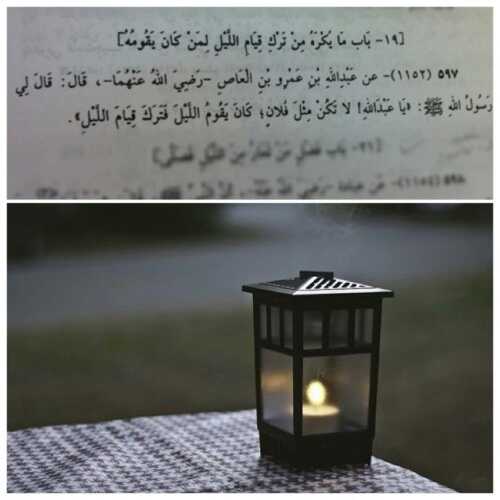 [١٩- بَاب مَا يُكْرَهُ مِنْ تَرْكِ قِيَامِ اللَّيْلِ لِمَنْ كَانَ يَقُومُهُ]
٥٩٧ (١١٥٢)- عن عَبْدِاللهِ بْنِ عَمْرِو بْنِ الْعَاصِ -رَضِيَ اللهُ عَنْهُمَا-، قَالَ: قَالَ لِي
رَسُولُ اللهِ ﷺ: «يَا عَبْدَاللهِ! لا تَكُنْ مِثْلَ فُلَانٍ؛ كَانَ يَقُومُ اللَّيْلَ فَتَرَكَ قِيَامَ اللَّيْلِ».
[٢١- بَاب فَضْلِ مَنْ تَعَارَّ مِنَ اللَّيْلِ فَصَلَّى]